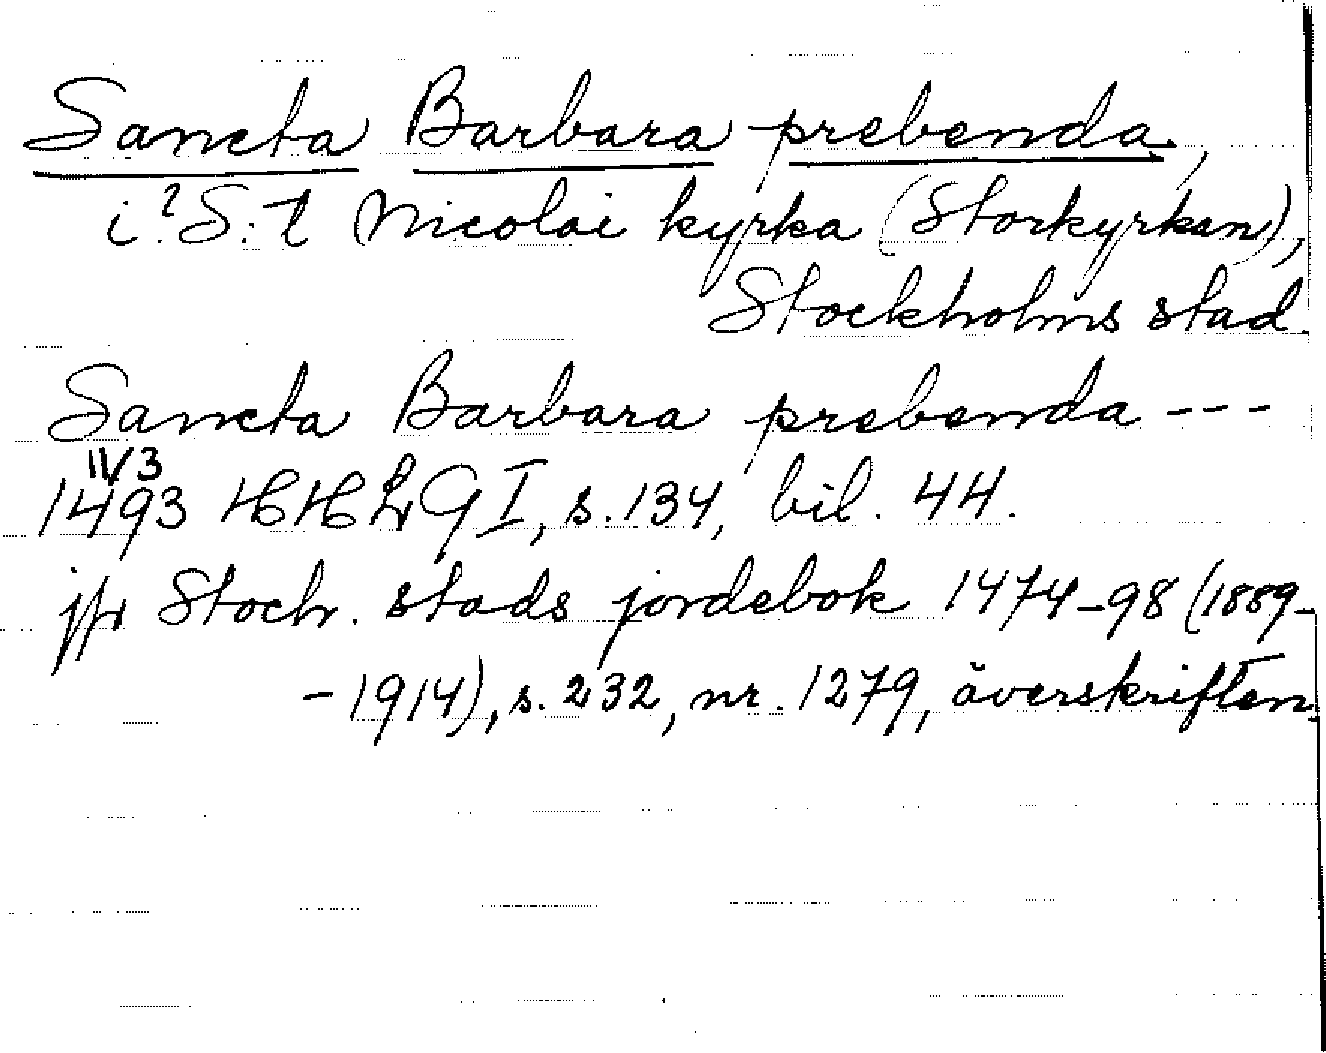 Sancta Barbara prebenda,
i? S:t Nicolai kyrka (Storkyrkan),
Stockholms stad.
Sancta Barbara prebenda ---
11/3
1493 HHLG I, s. 134, bil. 44.
jfr Stock. stads jordebok 1474-98 (1889-
-1914), s. 232, nr. 1279, överskriften.